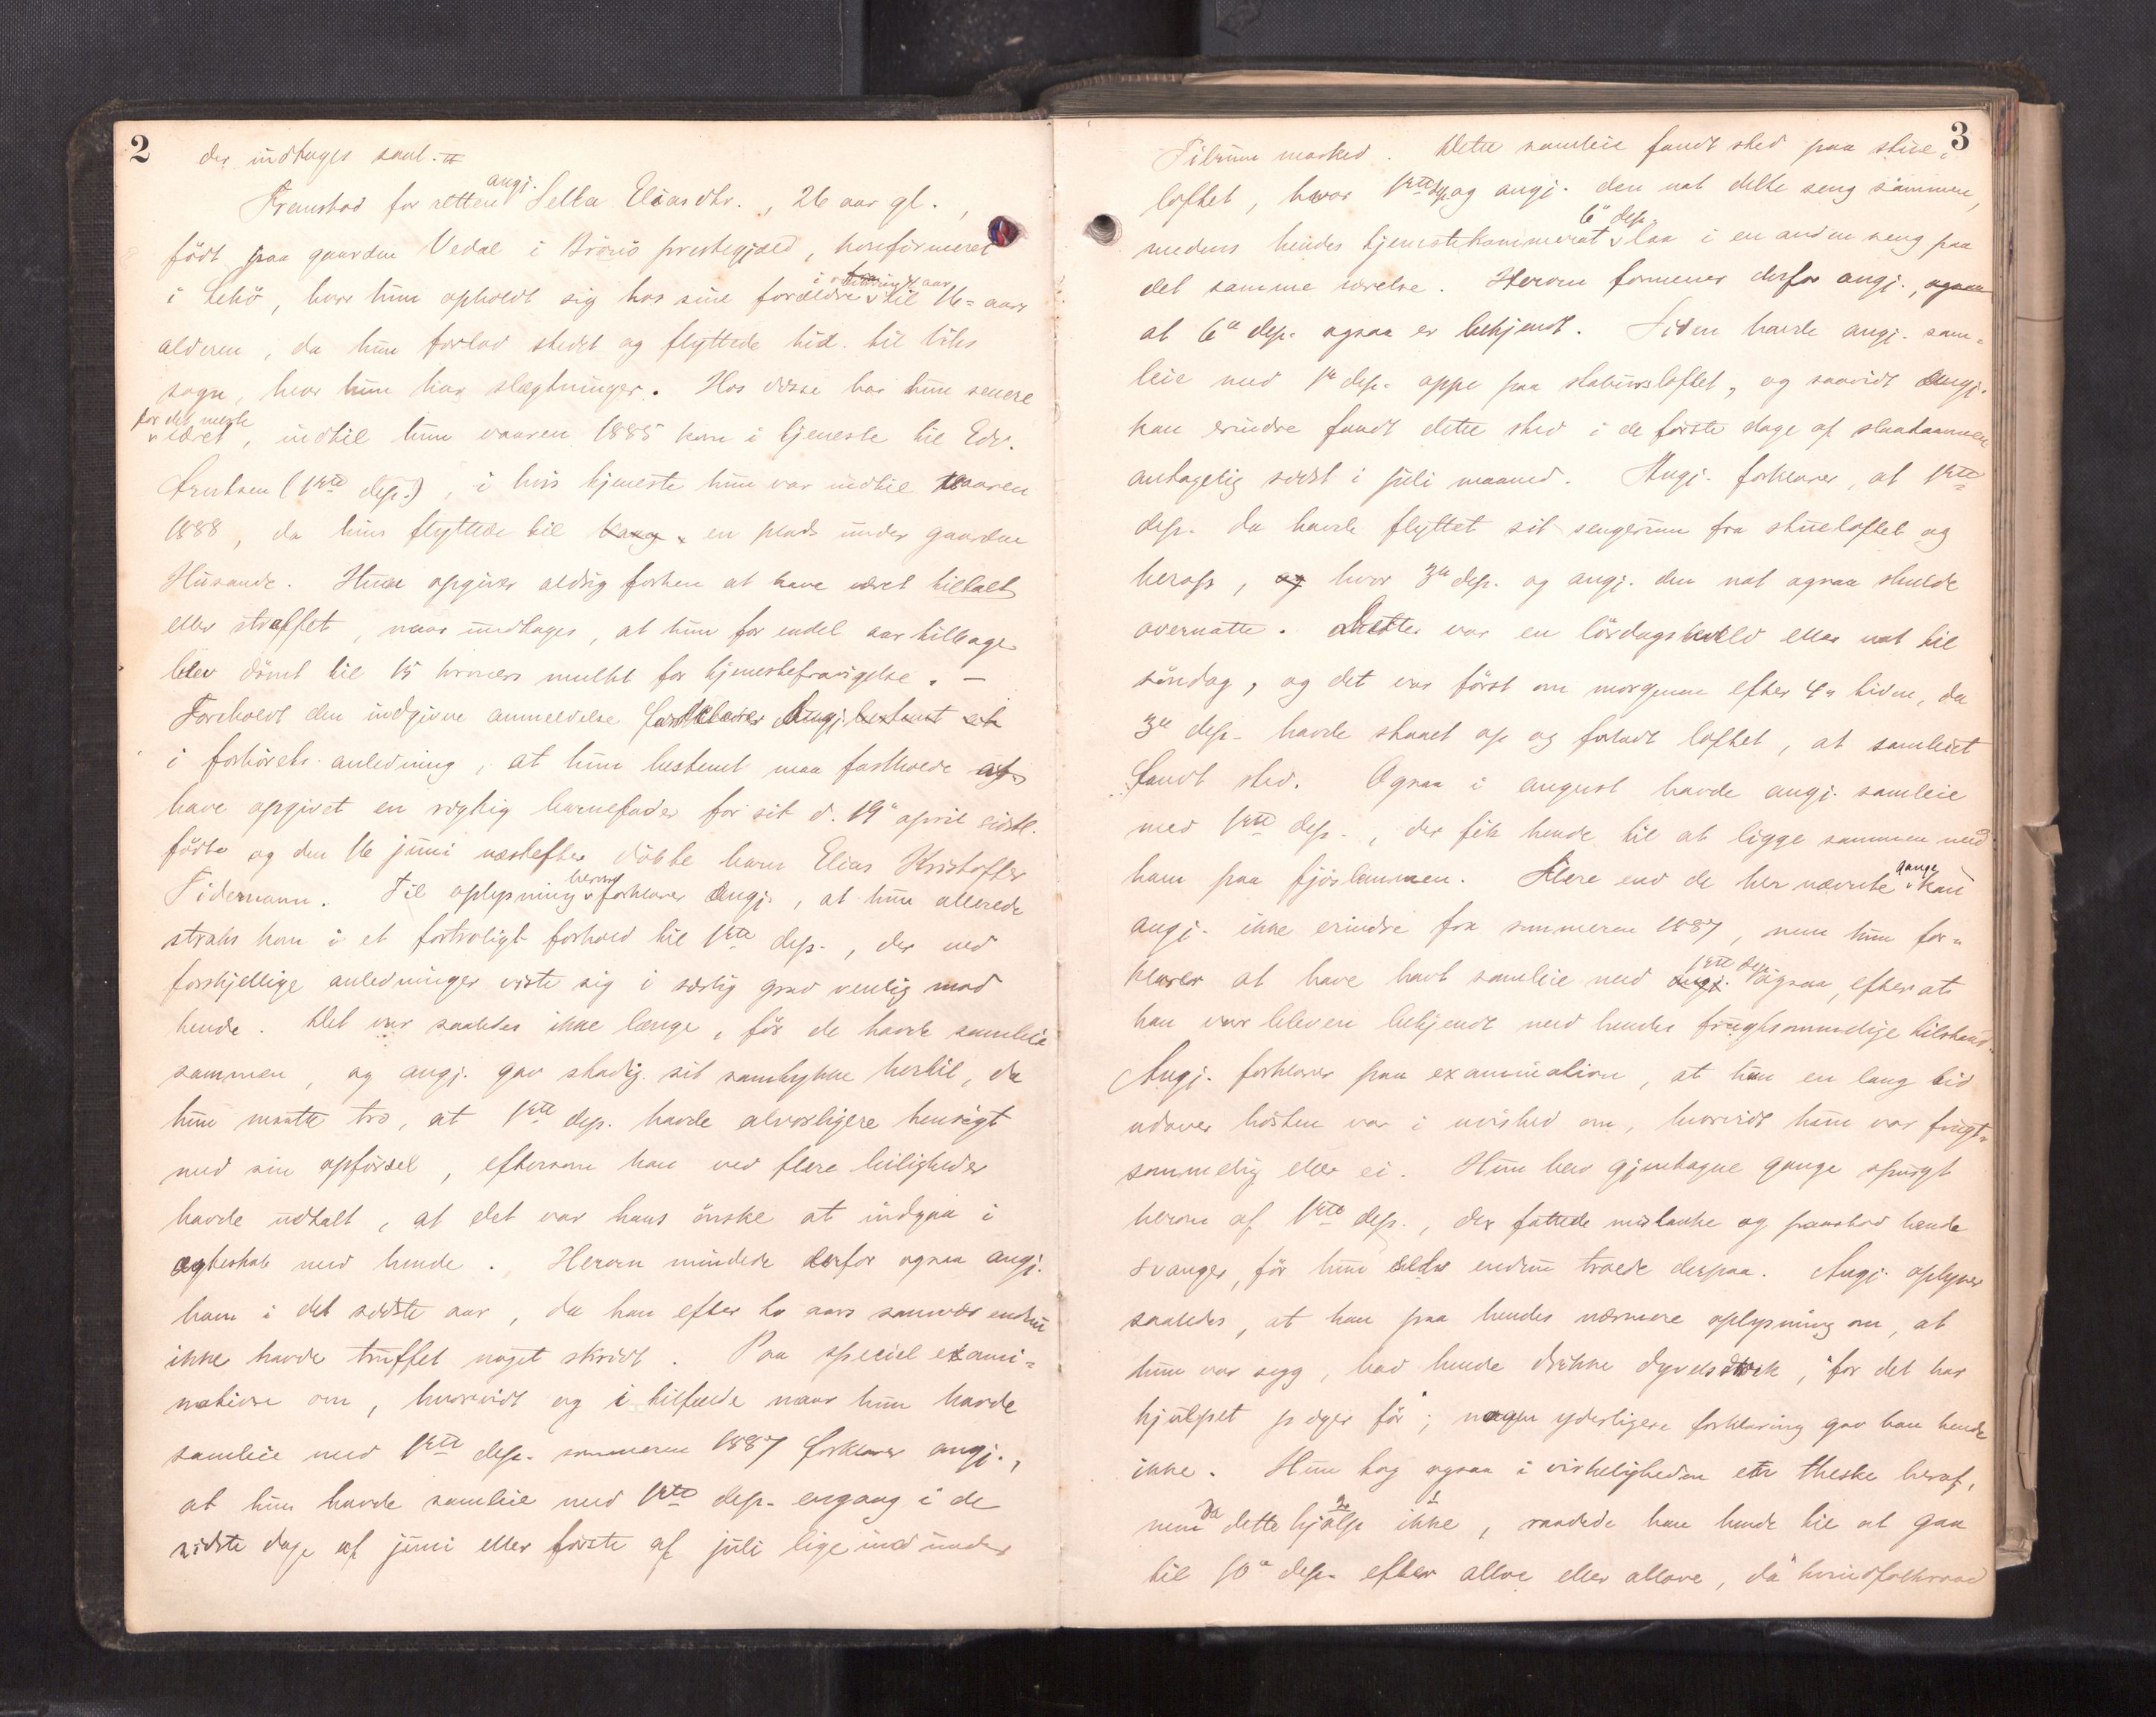 2
der indtages saal.
angj.
Fremstod for retten Sella Eliasdtr., 26 aar gl.,
født paa gaarden Vedal i Brønø prestegjæld, konfirmeret
i omtrindt aar
i Lekø, hvor hun opholdt sig hos sine forældre til 16-aars
alderen, da hun forlod stedet og flyttede hid til
sogn, hvor hun har slægtninger. Hos disse har hun senere
for det meste
været, indtil hun vaaren 1885 kom i tjeneste til Edv.
(1ste dep.), i hvis tjeneste hun var indtil vaaren
1888, da hun flyttede til en plads under gaarden
Husande. Hun opgiver aldrig forhen at have været tiltalt
eller straffet, naar undtages, at hun for endel aar tilbage
blev dømt til 15 kroners mulkt for tjenestefravigelse. —
Foreholdt den indgivne anmeldelse forklarer Angj. bestemt at
i forhørets anledning, at hun bestemt maa fastholde at
have opgivet en rigtig barnefader for sit d. 19de april sidstl.
fødte og den 16 juni næstefter døbte barn Elias Kristoffer
Tidemann. Til oplysning herom forklarer Angj., at hun allerede
straks kom i et fortroligt forhold til 1ste dep., der ved
forskjellige anledninger viste sig i særlig grad venlig mod
hende. Det var saaledes ikke længe, før de havde samleie
sammen, og angj. gav stadig sit samtykke hertil, da
hun maatte tro, at 1ste dep. havde alvorligere hensigt
med sin opførsel, eftersom han ved flere leiligheder
havde udtalt, at det var hans ønske at indgaa i
ægteskab med hende. Herom mindede derfor ogsaa angj.
ham i det sidste aar, da han efter to aars samvær endnu
ikke havde truffet noget skridt. Paa speciel exami-
nation om, hvorvidt og i tilfælde naar hun havde
samleie med 1ste dep. sommeren 1887 forklarer angj.,
at hun havde samleie med 1ste dep. engang i de
sidste dage af juni eller første af juli lige ind under
3
Tilrum marked. Dette samleie fandt sted paa stue-
loftet, hvor 1ste dep. og angj. den nat delte seng sammen,
6te dep.
medens hendes tjenestekammerat laa i en anden seng paa
det samme værelse. Herom formener derfor angj., ogsaa
at 6te dep. ogsaa er bekjendt. Siden havde angj. sam-
leie med 1ste dep. oppe paa stabursloftet, og saavidt Angj.
kan erindre fandt dette sted i de første dage af slaataannen
antagelig sidst i juli maaned. Angj. forklarer, at 1ste
dep. da havde flyttet sit sengerum fra stueloftet og
herop, og hvor 3de dep. og angj. den nat ogsaa skulde
overnatte. Dette var en lørdagskveld eller nat til
søndag, og det var først om morgenen efter 4 tiden, da
3de dep. havde staaet op og forladt loftet, at samleiet
fandt sted. Ogsaa i august havde angj. samleie
med 1ste dep., der fik hende til at ligge sammen med
gange
ham paa fjøslemmen. Flere end de her nævnte kan
angj. ikke erindre fra sommeren 1887, men hun for-
1ste dep.
klarer at have havt samleie med angj. ogsaa, efter at
han var bleven bekjendt med hendes frugtsommelige tilstand.
Angj. forklarer paa examination, at hun en lang tid
udover høsten var i uvished om, hvorvidt hun var frugt-
sommelig eller ei. Hun blev gjentagne gange spurgt
herom af 1ste dep., der fattede mistanke og paastod hende
svanger, før hun selv endnu troede derpaa. Angj. oplyser
saaledes, at han paa hendes nærmere oplysning om, at
hun var sygg, bad hende drikke dyvelsdræk, "for det har
hjulpet piger før"; nogen yderligere forklaring gav han hende
ikke. Hun tog ogsaa i virkeligheden en theske heraf,
da 2 1
men dette hjalp ikke, raadede han hende til at gaa
til 10de dep. efter alloe eller allove, da kvindfolkraad